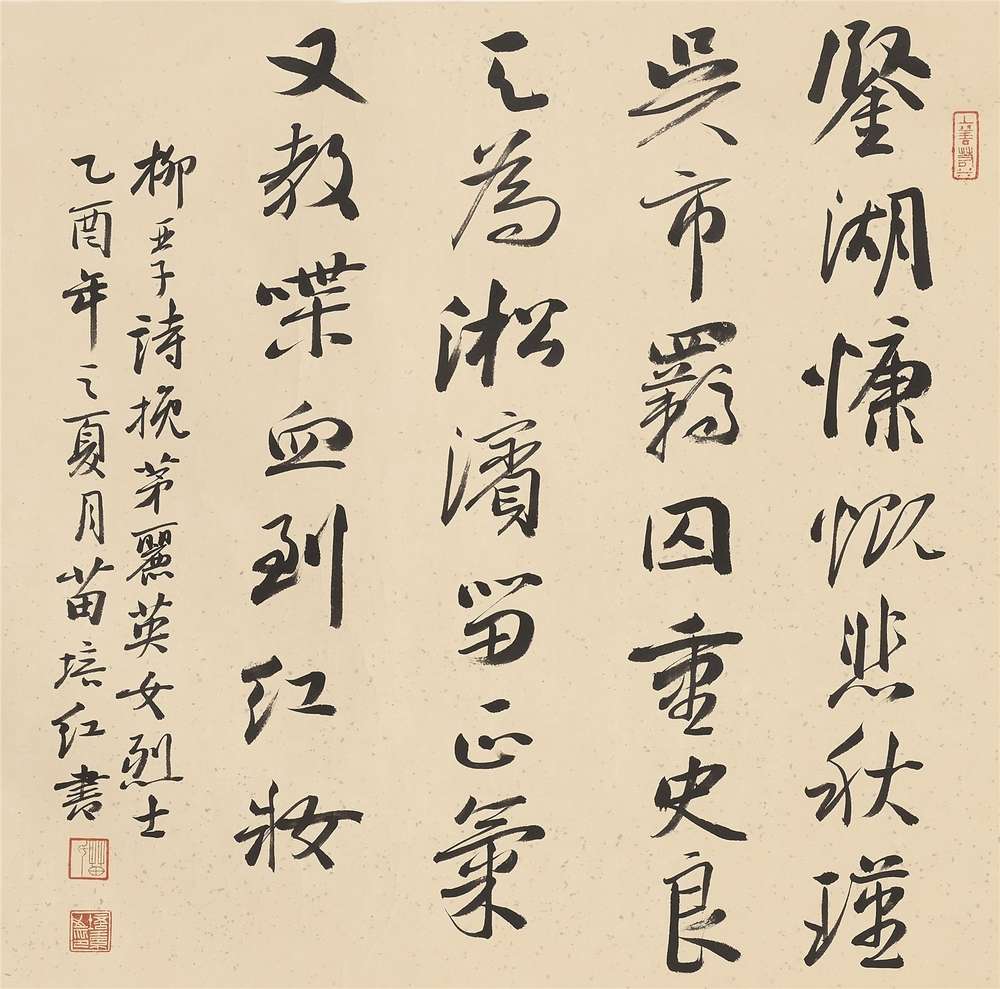 鑒湖慷慨悲秋瑾
吳市羈囚重史良
天為淞濱留正氣
又教喋血到红妝
柳亞子詩挽茅麗英女烈士
乙酉年之夏月苗培红書